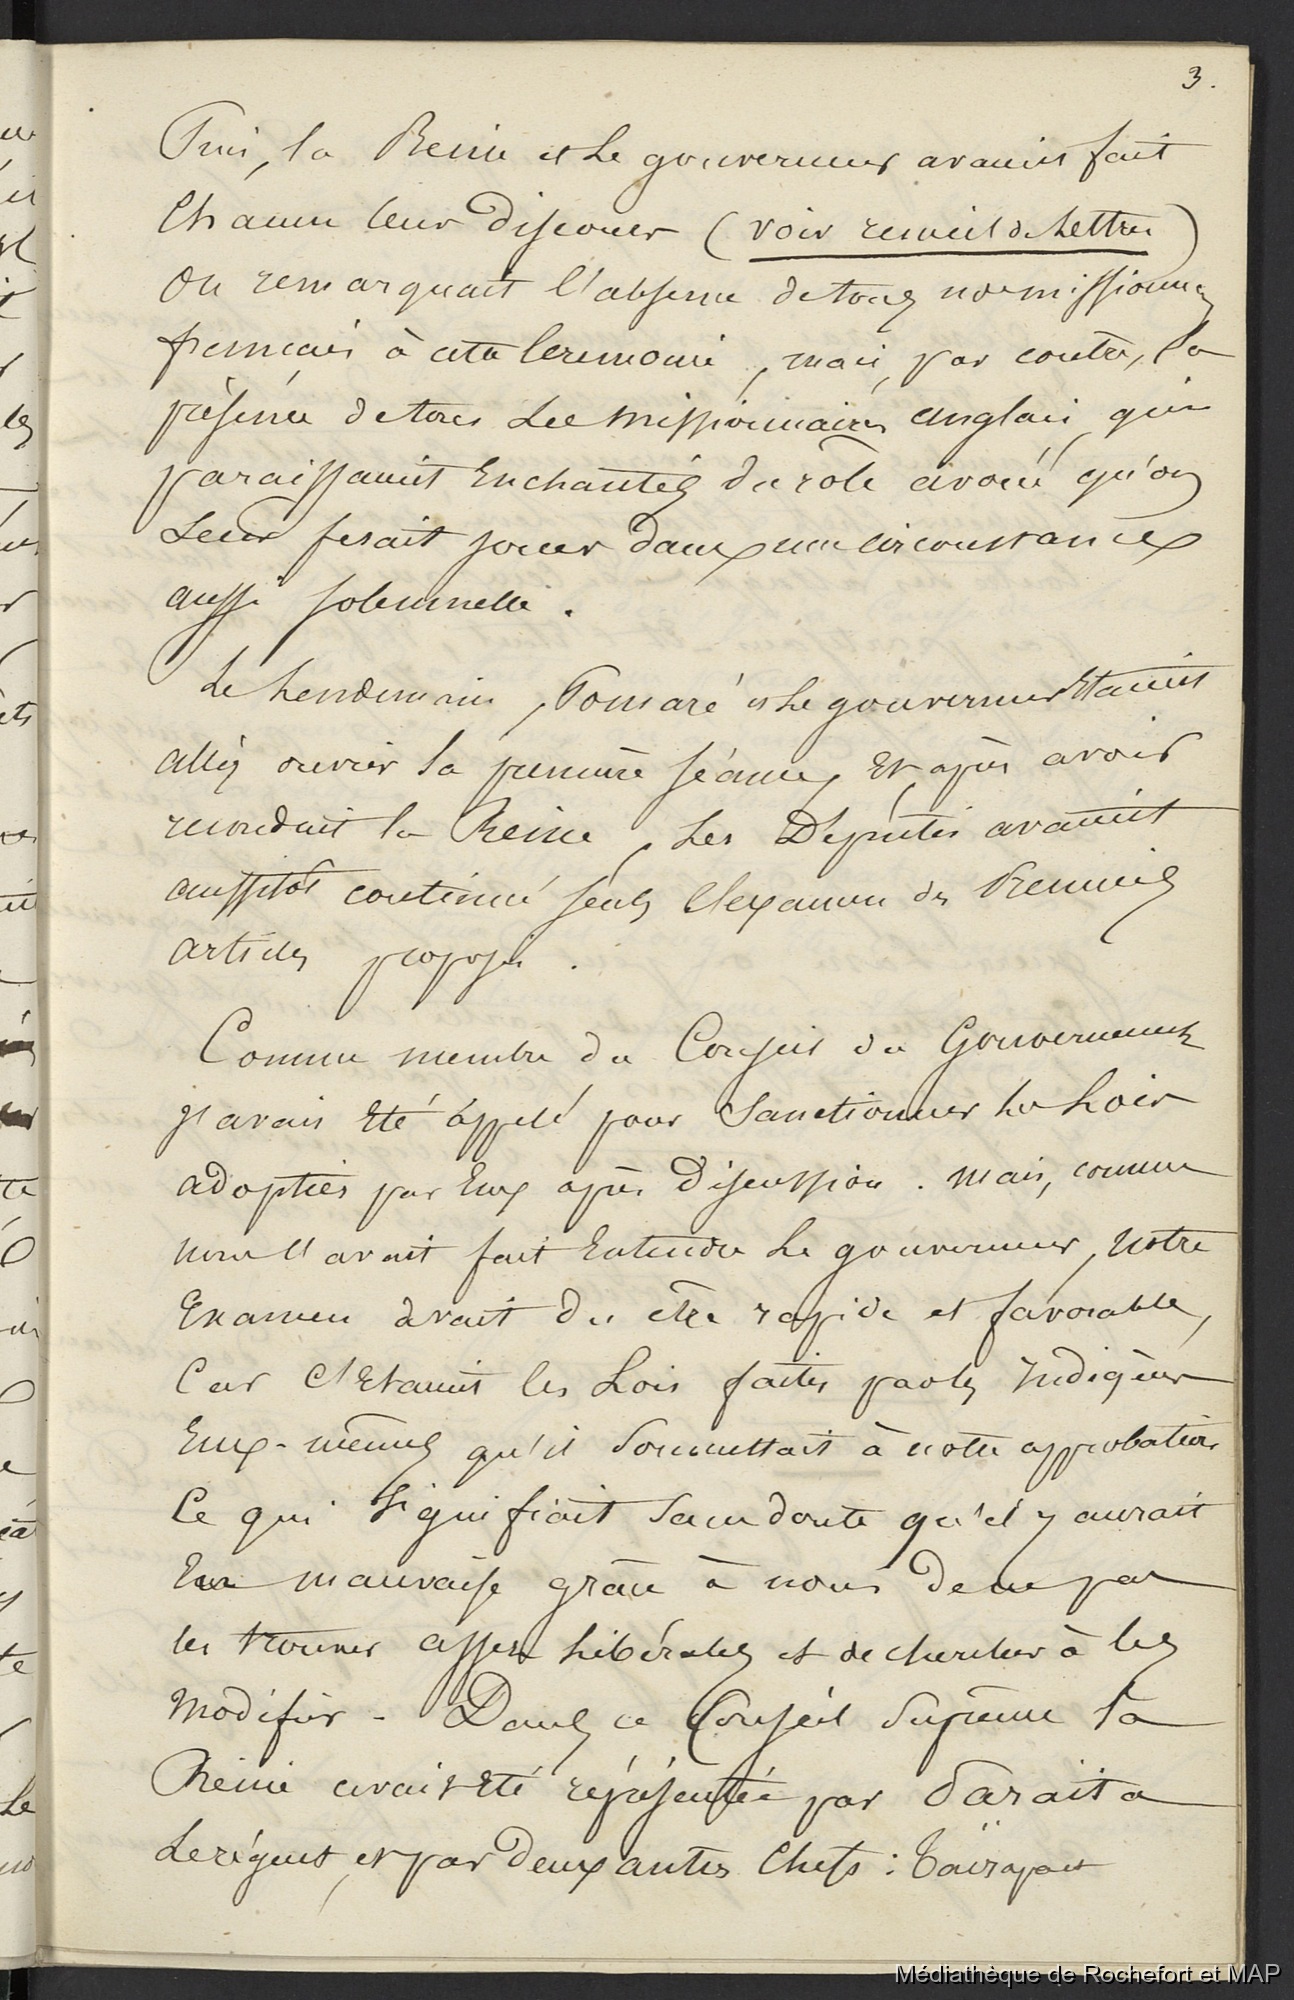 3.
Puis, la Reine et Le gouverneur avaient fait
Chacun leur Discours (voir recueil de Lettres)
On remarquait l'absence de tous nos missionnes
français à cette Cérémonie, mais, par contre, la
présence de tous Les Missionnaires anglais qui
paraissaient Enchantés du rôle avoué qu'on
Leur fesait jouer dans une circonstance
aussi solennelle.
Le Lendemain, Pomaré et Le gouverneur Etaient
allés ouvrir la première séance, Et après avoir
reconduit la Reine, Les Députés avaient
aussitôt continué seuls l'Examen des Premiers
articles proposés.
Comme membre du Conseil du Gouvernement
j'avais Eté appelé pour Sanctionner les Lois
adoptées par Eux après Discussion. Mais, comme
nous l'avait fait Entendre Le gouverneur, notre
Examen devait du être rapide et favorable,
Car C'Etaient les Lois faites par les Indigènes
Eux-mêmes qu'il Soumettait à notre approbation
Ce qui Signifiait Sans doute qu'il y aurait
Eu mauvaise grâce à nous de ne pas
les trouver assez Libérales et de chercher à les
Modifier - Dans ce Conseil Suprême la
Reine avait Eté représentée par Paraita
Le régent, et par Deux autres Chefs : Taïrapa
Médiathèque de Rochefort et MAP